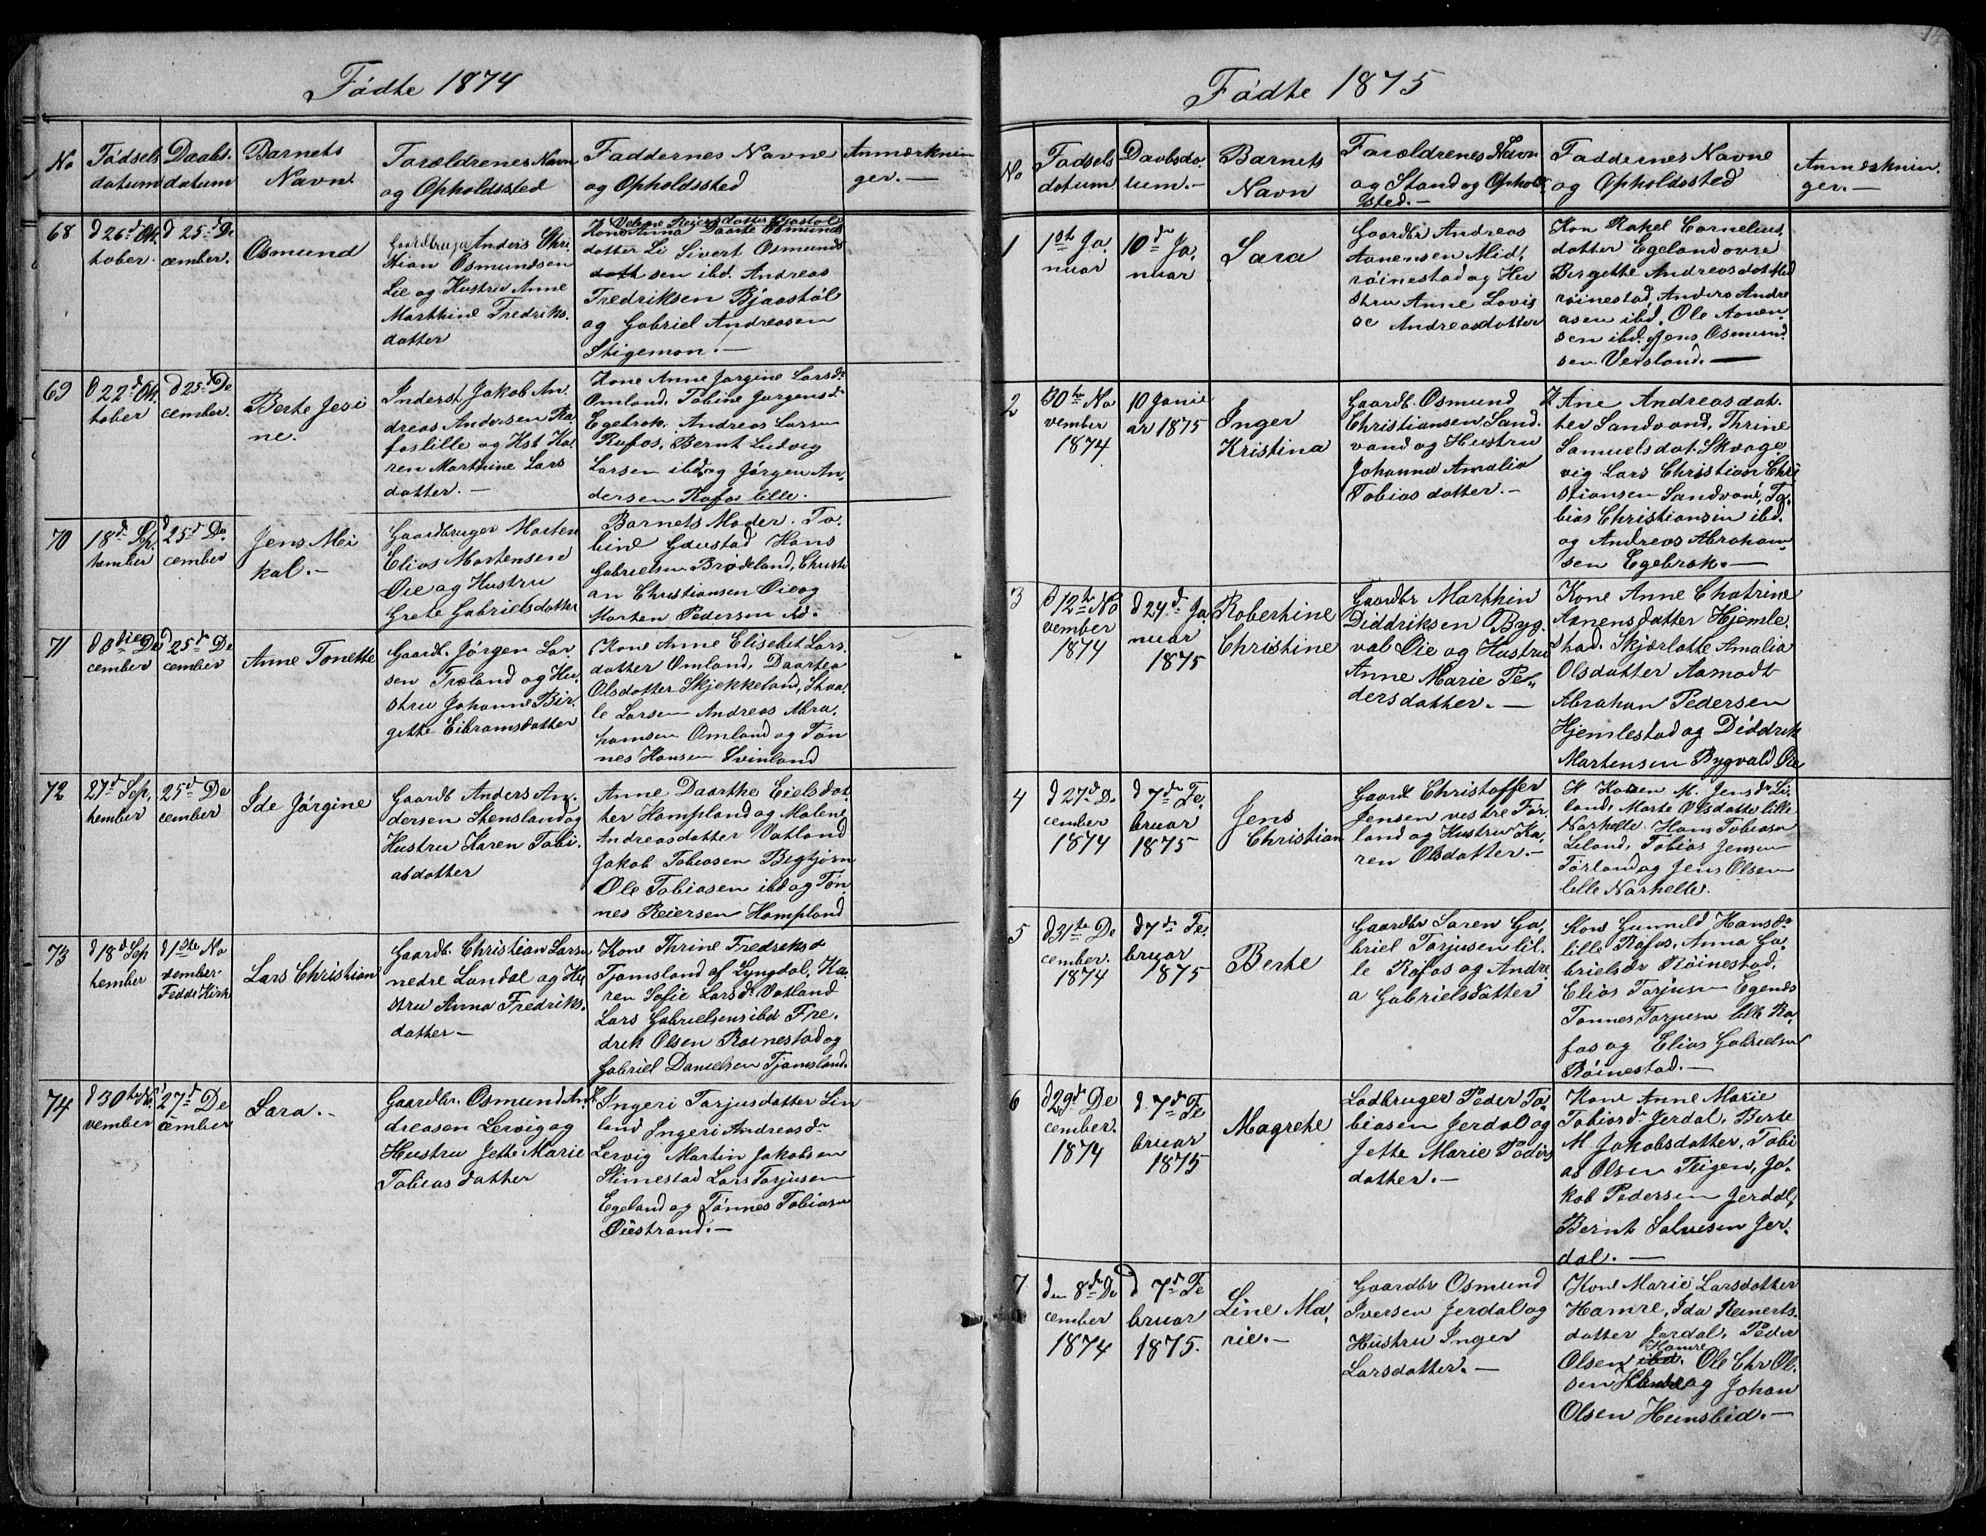 Fødte 1874
No
Fødsels
datum
Daabs.
datum
Barnets
Navn
Foræeldrenes Navn
og Opholdssted
Faddernes Navne
og Opholdssted
Anmærknin
ger.-
68
d 26d Ok
tober.
d 25d De
cember.
Osmund
Gaardbruger Anders Chri
stian Osmundsen
Lie og Hustru Anne
Marthine Fredriks.
datter
Kone Anna Daarte Osmunds
datter Li Sivert Osmunds
sen ibd. Andreas
Fredriksen Bjaastøl
og Gabriel Andreasen
Stigemon.-
69
d 22d Ok
tober
d 25d De
cember.
Berte Jesi
ne.
Inderst Jakob An,
dreas Andersen Ra
foslille og Hst Ka
ren Marthine Lars
datter.-
Kone Anne Jørgine Larsdr
Omland, Tobine Jørgensdr
Egebrok, Andreas Larsen
Rafos, Bernt Ludvig
Larsen ibd og Jørgen An,
dersen Rafos lille.
70
18d Sep.
tember
d 25d De,
cember
Jens Mi
kal.-
Gaardbruger Morten
Elias Mortensen
Øie og Hustru
Grete Gabrielsdatter
Barnets Moder. To,
bine Gaustad Hans
Gabrielsen Brødeland, Christi
an Christiansen Øie og
Morten Pedersen ibd.
71
cember
d 25d De
cember
Anne Tonette
Gaardb. Jørgen Lar,
sen Træland og Hu,
stru Johanne Bir,
gette Eibramsdatter
Kone Anne Elisebet Lars
datter Omland, Daartea
Olsdatter Skjekkeland, Staa,
le Larsen Andreas Abra,
hamsen Omland og Tøn
nes Hansen Svinland
72
27d Sep,
tember
25d De
cember
Ide Jørgine
Gaardb. Anders An,
dersen Stensland og
Hustru Karen Tobi,
asdatter
Anne Daarthe Eielsdat,
ter Hompland og Malene
Andreasdatter Vatland
Jakob Tobiasen Bigtjørn
Ole Tobiasen ibd og Tøn,
nes Reiersen Hompland
73
d 18d Sep
tember
d 1ste No
vember.
Fedde Kirke
Lars Christian
Gaardb. Christian Larsen
nedre Landal og Hu
stru Anna Fredriks.
datter-
Kone Thrine Fredriksdr
Tjomsland af Lyngdal, Ka,
ren Sofie Larsdr Vatland
Lars Gabrielsen ibd Fre,
drik Olsen Røinestad og
Gabriel Danielsen Tjomsland.
74
d 30te No,
vember
27d De
cember
Sara.-
Gaardbr. Osmund An,
dreasen Lervig og
Hustru Jette Marie
Tobiasdatter
Ingeri Tarjusdatter Lin
land Ingeri Andreasdr
Lervig Martin Jakobsen
Slimestad Lars Tarjusen
Egeland og Tønnes Tobiasen
Øiestrand.-
Fødte 1875
No
Fødsels
datum
Daabsda,
tum.-
Barnets
Navn
Forældrenes Navn
og Stand og Ophold,
sted.-
Faddernes Navne
og Opholdssted
Anmærknin,
ger.-
1
1ste Ja,
nuar
10de Ja,
nuar
Sara
Gaardbr Andreas
Aanensen Mid,
røinestad og Hu
stru Anne Lovis
se Andreasdatter
Kon Rakel Cornelius,
datter Egeland øvre
Birgette Andreasdat Mid
røinestad, Anders Andre
asen ibd. Ole Aanen,
sen ibd. Jens Osmund
sen Versland.-
2
30te No
vember
1874
10 Janu
ar 1875
Inger
Kristina
Gaardb. Osmund
Christiansen Sand,
vand og Hustru
Johanne Amalia
Tobiasdatter.-
K Ane Andreasdat.
ter Sandvand, Thrine
Samuelsdat. Skrage
vig Lars Christian Chri
stiansen Sandvand, To,
bias Christiansen ibd.
og Andreas Abraham,
sen Egebrok.-
3
d 12te No
vember
1874
d 24d Ja
nuar
1875
Robertine
Christine
Gaardbr Marthin
Diddriksen Byg,
val Øie og Hustru
Anne Marie Pe,
dersdatter.-
Kone Anne Chatrine
Aanensdatter Hjemle,
stad. Skjærlotte Amalia
Olsdatter Aamodt
Abraham Pedersen
Hjemlestad og Diddrik
Martensen Bygvald Øie
4
d 27d De
cember
1874
d 7de Fe,
bruar
1875
Jens
Christian
Gaardb Christoffer
Jensen vestre Tør,
land og Hustru Ka,
ren Olsdatter-
K Karen M. Jensdr Li,
land, Marte Olsdatte lille
Narhelle. Hans Tobiasen
Liland, Tobias Jensen
Tørland og Jens Olsen
lille Narhelle.
5
d 31te De
cember.
1874
d 7de Fe,
bruar
1875
Berte
Gaardbr Søren Ga,
briel Tarjusen lil,
le Rafos og Andre
a Gabrielsdatter
Kone Gunneld Hansdr
lille Rafos, Anna Ga,
brielsdr Røinestad,
Elias Tarjusen Egenes
Tønnes Tarjusen lille Ra,
fos og Elias Gabrielsen
Røinestad.-
6
d 29d De
cember.
1874
d. 7de Fe
bruar
1875
Magrete
Ladbruger Peder To,
biasen Jerdal og
Jette Marie Peders
datter.-
Kone Anne Marie
Tobiasdr Jerdal, Berte
M Jakobsdatter, Tobi
as Olsen Teigen, Ja,
kob Pedersen Jerdal,
Bernt Salvesen Jer,
dal.-
7
den 8de De
cember
1874
d 7de Fe
bruar
1875.
Line Ma,
rie.-
Gaardbr Osmund
Iversen Jerdal og
Hustru Inger
Larsdatter.-
Kone Marie Larsdatter
Hamre, Ida Reinerts,
datter Jerdal, Peder
Hamre
Olsen ibd. Ole Chr Ol,
sen og Johan
Olsen Hamre ibid.-